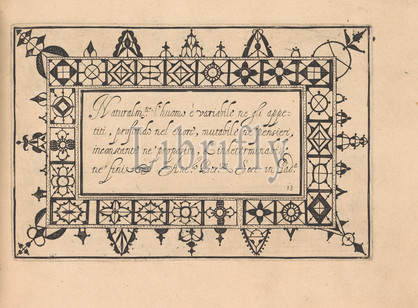 Naturalm.te l'huomo è variabile ne gli appe-
titi, profondo nel cuore, mutabile ne pensieri,
inconstante ne propositi, & indeterminato
ne fini
13